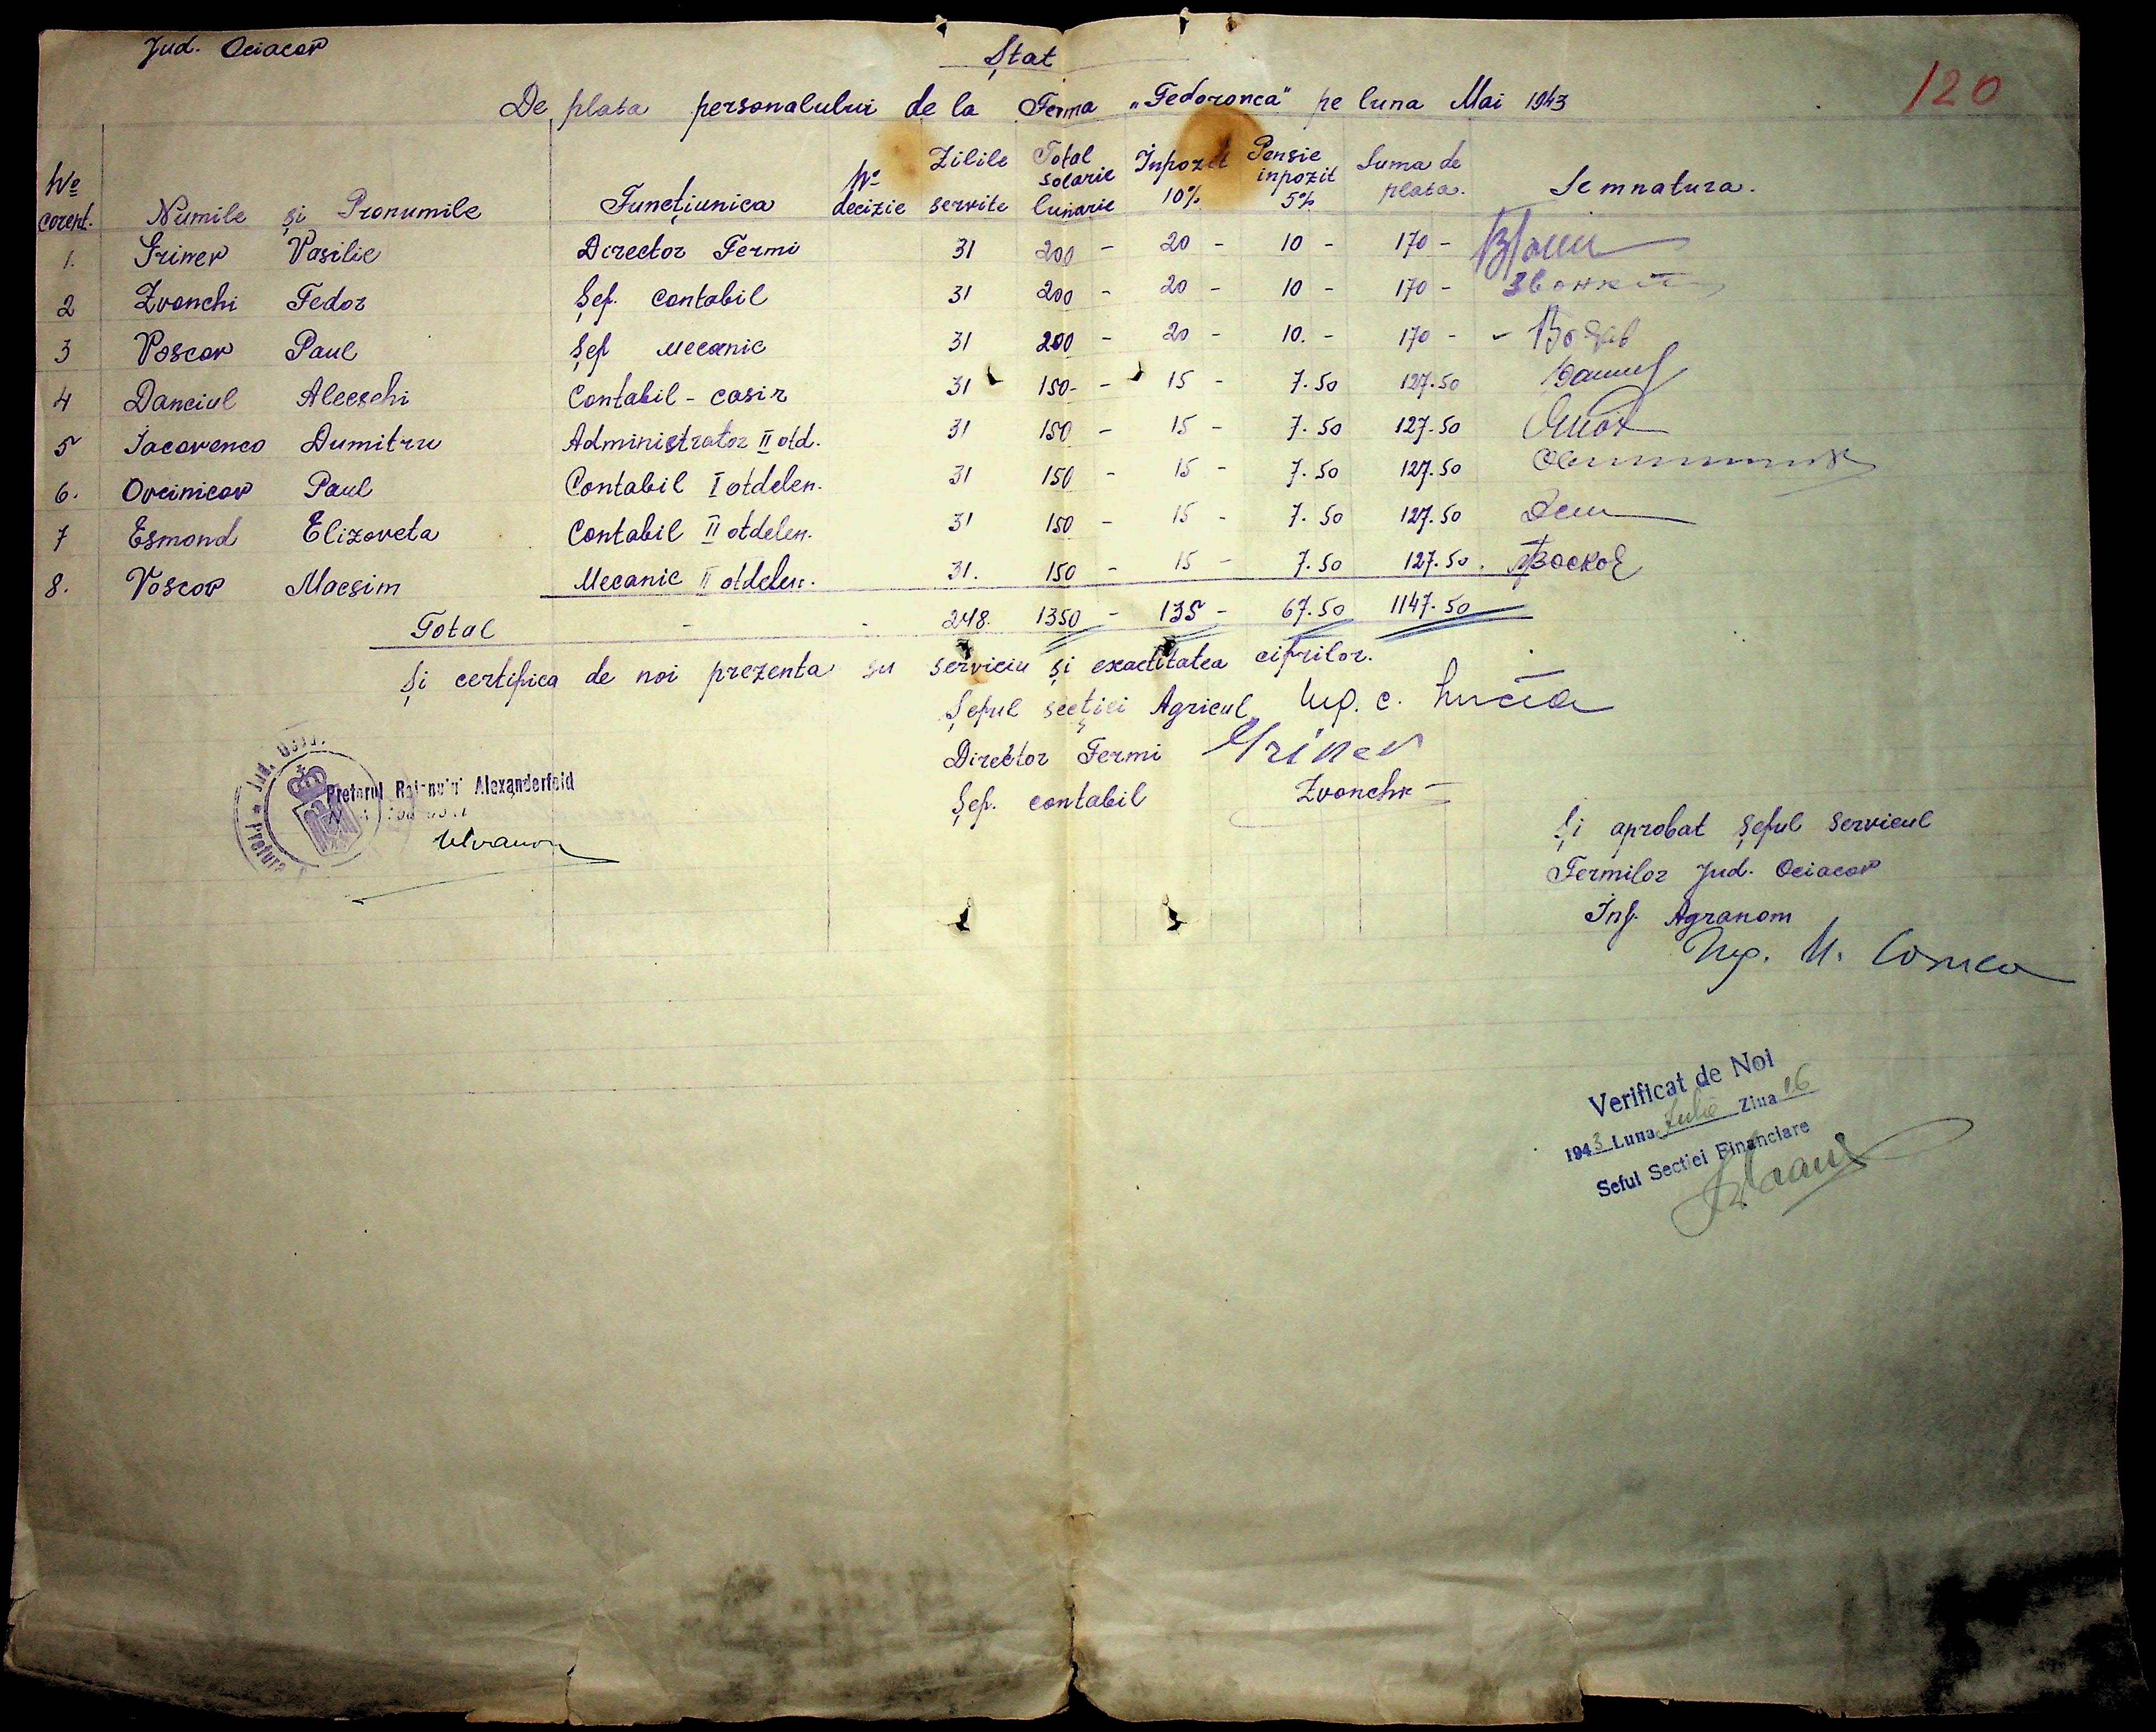 Jud. Ociacov
Ștat
120
De plata personalului de la Ferma „Fedorovca" pe luna Mai 1943
№ corent. Numile și Pronumile Funcțiunica № decizie Zilile servite Total solarie lunarie Inpozit 10% Pensie inpozit 5% Suma de plata. Semnatura.
1. Grinev Vasilie Director Fermi 31 200 - 20 - 10 - 170 -
2 Zvonchi Fedor Șef. contabil 31 200 - 20 - 10 - 170 - Звонкий
3 Voscov Paul Șef mecanic 31 200 - 20 - 10. - 170 -
4 Danciul Alecschi Contabil - casir 31 150 - - 15 - 7.50 127.50
5 Iacovenco Dumitru Administrator II otd. 31 150 - 15 - 7.50 127.50
6. Ovcinicov Paul Contabil I otdelen. 31 150 - 15 - 7.50 127.50
7 Esmond Elizaveta Contabil II otdelen. 31 150 - 15 - 7.50 127.50
8. Voscov Macsim Mecanic II otdelen. 31. 150 - 15 - 7.50 127.50. Восков
Total - - 248. 1350 - 135 - 67.50 1147.50
Și certifica de noi prezenta su serviciu și exactitatea cifrilor.
Șeful secției Agricul Ing. C.
Director Fermi Grinev
Șef. contabil Zvonchi
Pretorul Raionului Alexanderfeld
Jud.
Pretura
Și aprobat șeful servicul
Fermilor Jud. Ociacov
Inj. Agranom
Ing. M.
Verificat de Noi
1943 Luna Iulie Ziua 16
Seful Sectiei Financiare